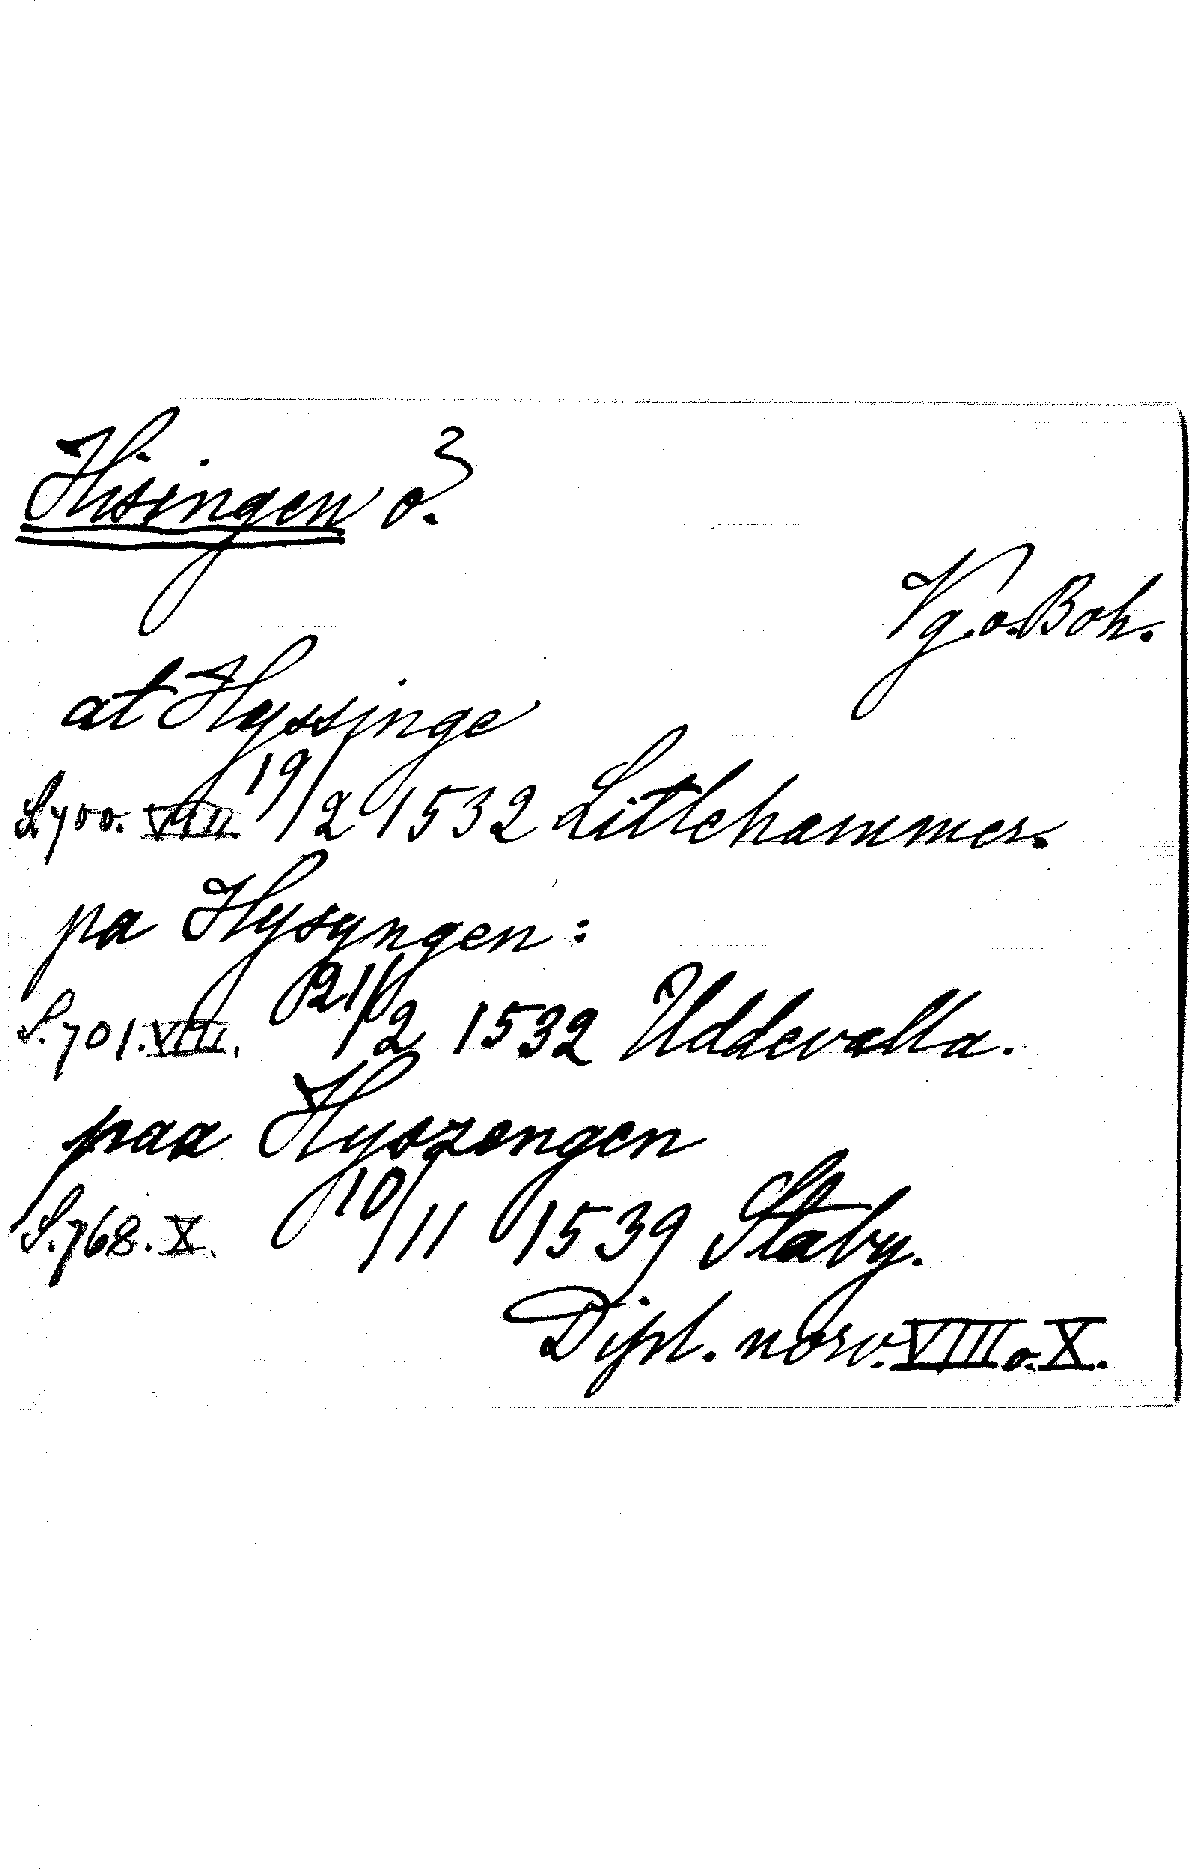 Hisingen ö.
Vg. o. Boh.
at Hyssinge
S. 700. VIII 19/2 1532 Litlehammer.
pa Hysyngen:
S. 701. VIII. 21/2 1532 Uddevalla.
paa Hyszengen
S. 768. X. 10/11 1539 Staby.
Dipl. norv. VIII o. X.